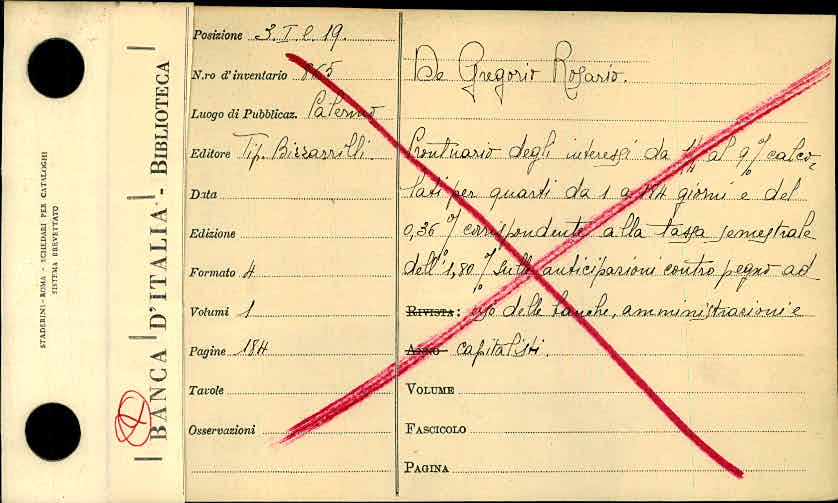 BANCA D'ITALIA - BIBLIOTECA
STADERINI-ROMA - SCHEDARI PER CATALOGHI
SISTEMA BREVETTATO
Posizione 3. I. l. 19.
N.ro d'inventario
Luogo di Pubblicaz. Palermo
Editore Tip. Bizzarrilli.
Data
Edizione
Formato 4
Volumi 1
Pagine 184
Tavole
Osservazioni
De Gregorio Rosario.
Prontuario degli interessi da ¼ al 9% calco-
lati per quarti da 1 a 184 giorni e del
0,36% corrispondente alla tassa semestrale
dell'1,80% sulle anticipazioni contro pegno ad
RIVISTA: uso delle banche, amministrazioni e
ANNO capitalisti.
VOLUME
FASCICOLO
PAGINA